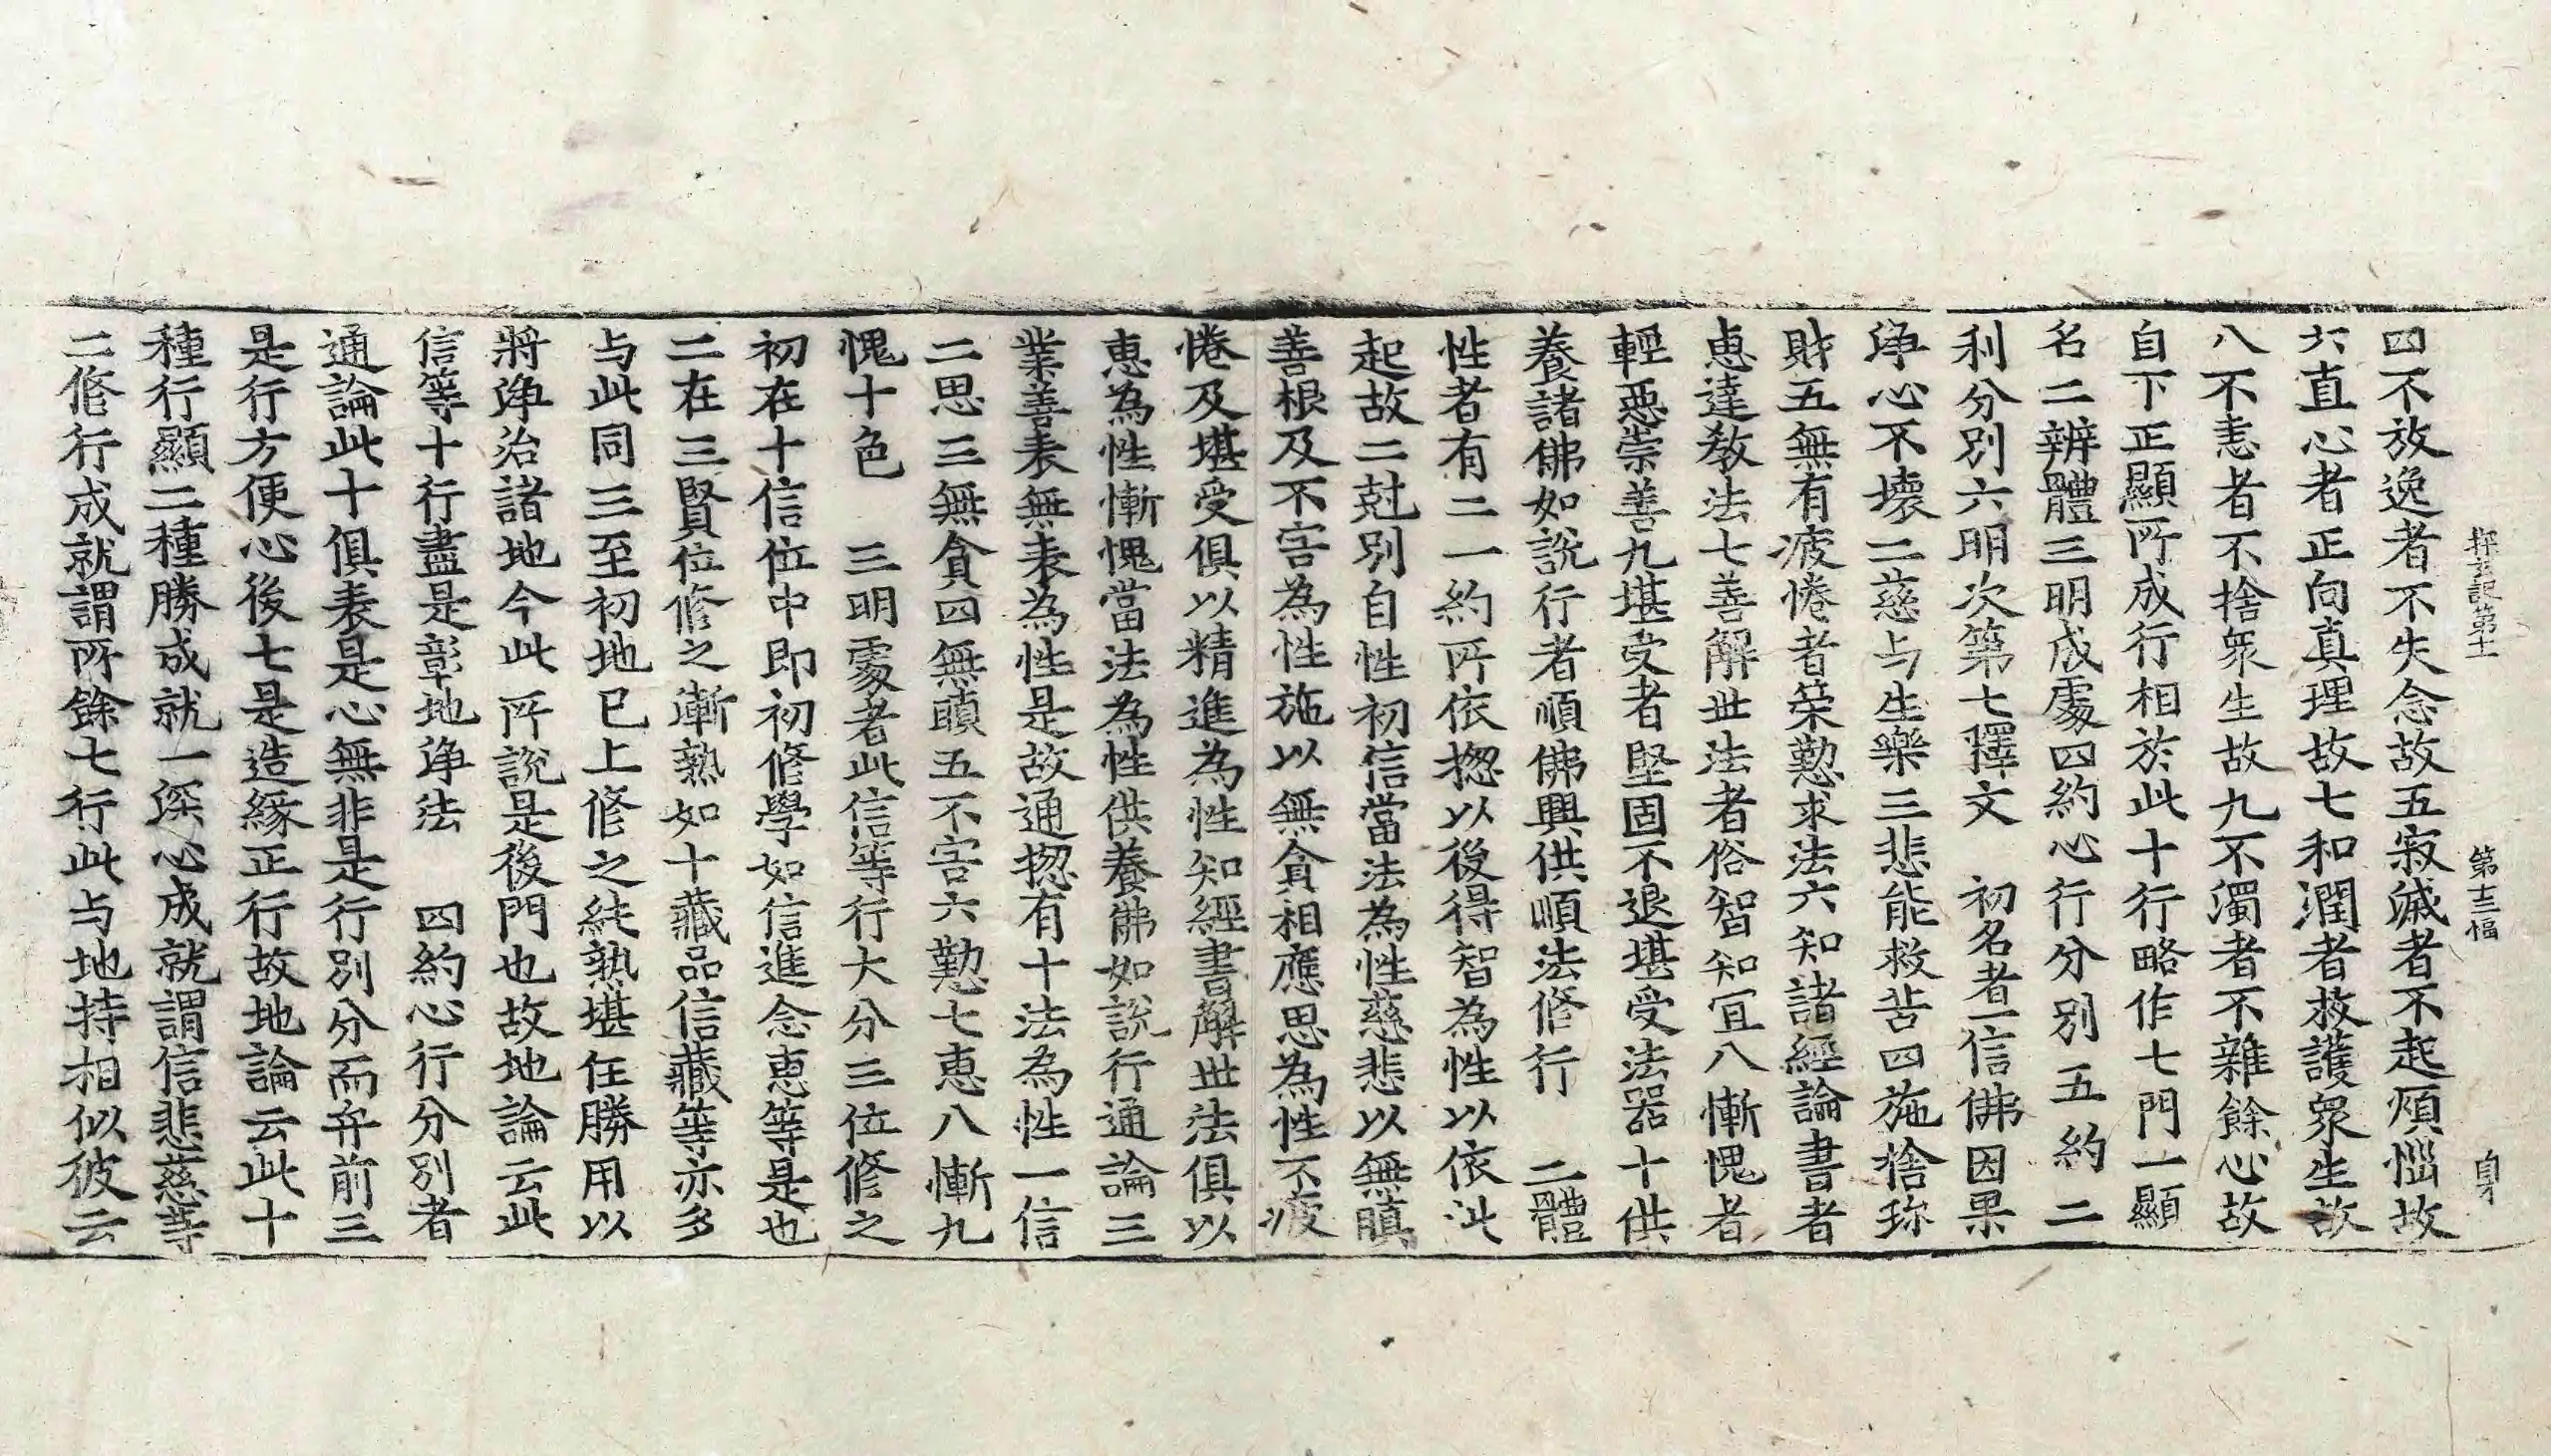 探玄記第十一 第十三幅 身
四不放逸者不失念故五寂滅者不起煩惱故
六直心者正向真理故七和潤者救護眾生故
八不恚者不捨眾生故九不濁者不雜餘心故
自下正顯所成行相於此十行略作七門一顯
名二辨體三明成處四約心行分別五約二
利分別六明次第七釋文 初名者一信佛因果
淨心不壞二慈与生樂三悲能救苦四施捨珎
財五無有疲惓者策懃求法六知諸經論書者
恵達教法七善解世法者俗智知宜八慚愧者
輕惡崇善九堪受者堅固不退堪受法器十供
養諸佛如說行者順佛興供順法修行 二體
性者有二一約所依揔以後得智為性以依此
起故二尅別自性初信當法為性慈悲以無瞋
善根及不害為性施以無貪相應思為性不疲
惓及堪受俱以精進為性知經書解世法俱以
恵為性慚愧當法為性供養佛如說行通論三
業善表無表為性是故通揔有十法為性一信
二思三無貪四無瞋五不害六懃七恵八慚九
愧十色 三明處者此信等行大分三位修之
初在十信位中即初修學如信進念恵等是也
二在三賢位修之漸熟如十藏品信藏等亦多
与此同三至初地已上修之純熟堪任勝用以
將淨治諸地今此所說是後門也故地論云此
信等十行盡是彰地淨法 四約心行分別者
通論此十俱表是心無非是行別分而弁前三
是行方便心後七是造緣正行故地論云此十
種行顯二種勝成就一深心成就謂信悲慈等
二修行成就謂所餘七行此与地持相似彼云